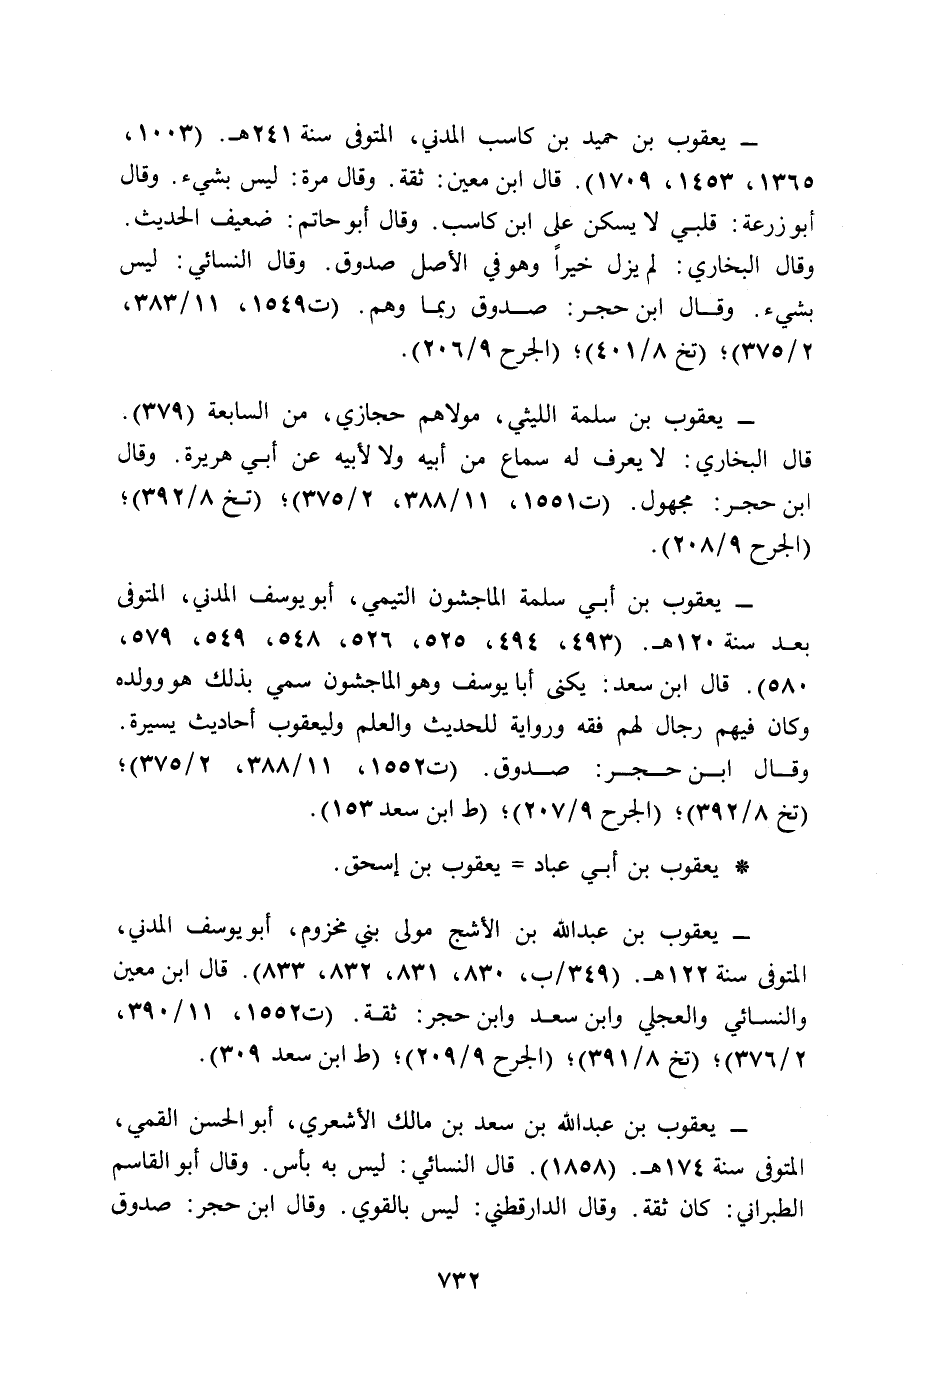 ــ يعقوب بن حميد بن كاسب المدني، المتوفى سنة ٢٤١هـ. (١٠٠٣،
١٣٦٥، ١٤٥٣، ١٧٠٩). قال ابن معين: ثقة. وقال مرة: ليس بشيء. وقال
أبو زرعة: قلبي لا يسكن على ابن كاسب. وقال أبو حاتم: ضعيف الحديث.
وقال البخاري: لم يزل خيراً وهو في الأصل صدوق. وقال النسائي: ليس
بشيء. وقال ابن حجر: صدوق ربما وهم. (ت١٥٤٩، ٣٨٣/١١،
٣٧٥/٢)؛ (تخ ٤٠١/٨)؛ (الجرح ٢٠٦/٩).
ــ يعقوب بن سلمة الليثي، مولاهم حجازي، من السابعة (٣٧٩).
قال البخاري: لا يعرف له سماع من أبيه ولا لأبيه عن أبي هريرة. وقال
ابن حجر: مجهول. (ت١٥٥١، ٣٨٨/١١، ٣٧٥/٢)؛ (تخ ٣٩٢/٨)؛
(الجرح ٢٠٨/٩).
ــ يعقوب بن أبي سلمة الماجشون التيمي، أبو يوسف المدني، المتوفى
بعد سنة ١٢٠هـ. (٤٩٣، ٤٩٤، ٥٢٥، ٥٢٦، ٥٤٨، ٥٤٩، ٥٧٩،
٥٨٠). قال ابن سعد: يكنى أبا يوسف وهو الماجشون سمي بذلك هو وولده
وكان فيهم رجال لهم فقه ورواية للحديث والعلم وليعقوب أحاديث يسيرة.
وقال ابن حجر: صدوق. (ت١٥٥٢، ٣٨٨/١١، ٣٧٥/٢)؛
(تخ ٣٩٢/٨)؛ (الجرح ٢٠٧/٩)؛ (ط ابن سعد ١٥٣).
* يعقوب بن أبي عباد = يعقوب بن إسحق.
ــ يعقوب بن عبدالله بن الأشج مولى بني مخزوم، أبو يوسف المدني،
المتوفى سنة ١٢٢هـ. (٣٤٩/ب، ٨٣٠، ٨٣١، ٨٣٢، ٨٣٣). قال ابن معين
والنسائي والعجلي وابن سعد وابن حجر: ثقة. (ت١٥٥٢، ٣٩٠/١١،
٣٧٦/٢)؛ (تخ ٣٩١/٨)؛ (الجرح ٢٠٩/٩)؛ (ط ابن سعد ٣٠٩).
ــ يعقوب بن عبدالله بن سعد بن مالك الأشعري، أبو الحسن القمي،
المتوفى سنة ١٧٤هـ. (١٨٥٨). قال النسائي: ليس به بأس. وقال أبو القاسم
الطبراني: كان ثقة. وقال الدارقطني: ليس بالقوي. وقال ابن حجر: صدوق
٧٣٢